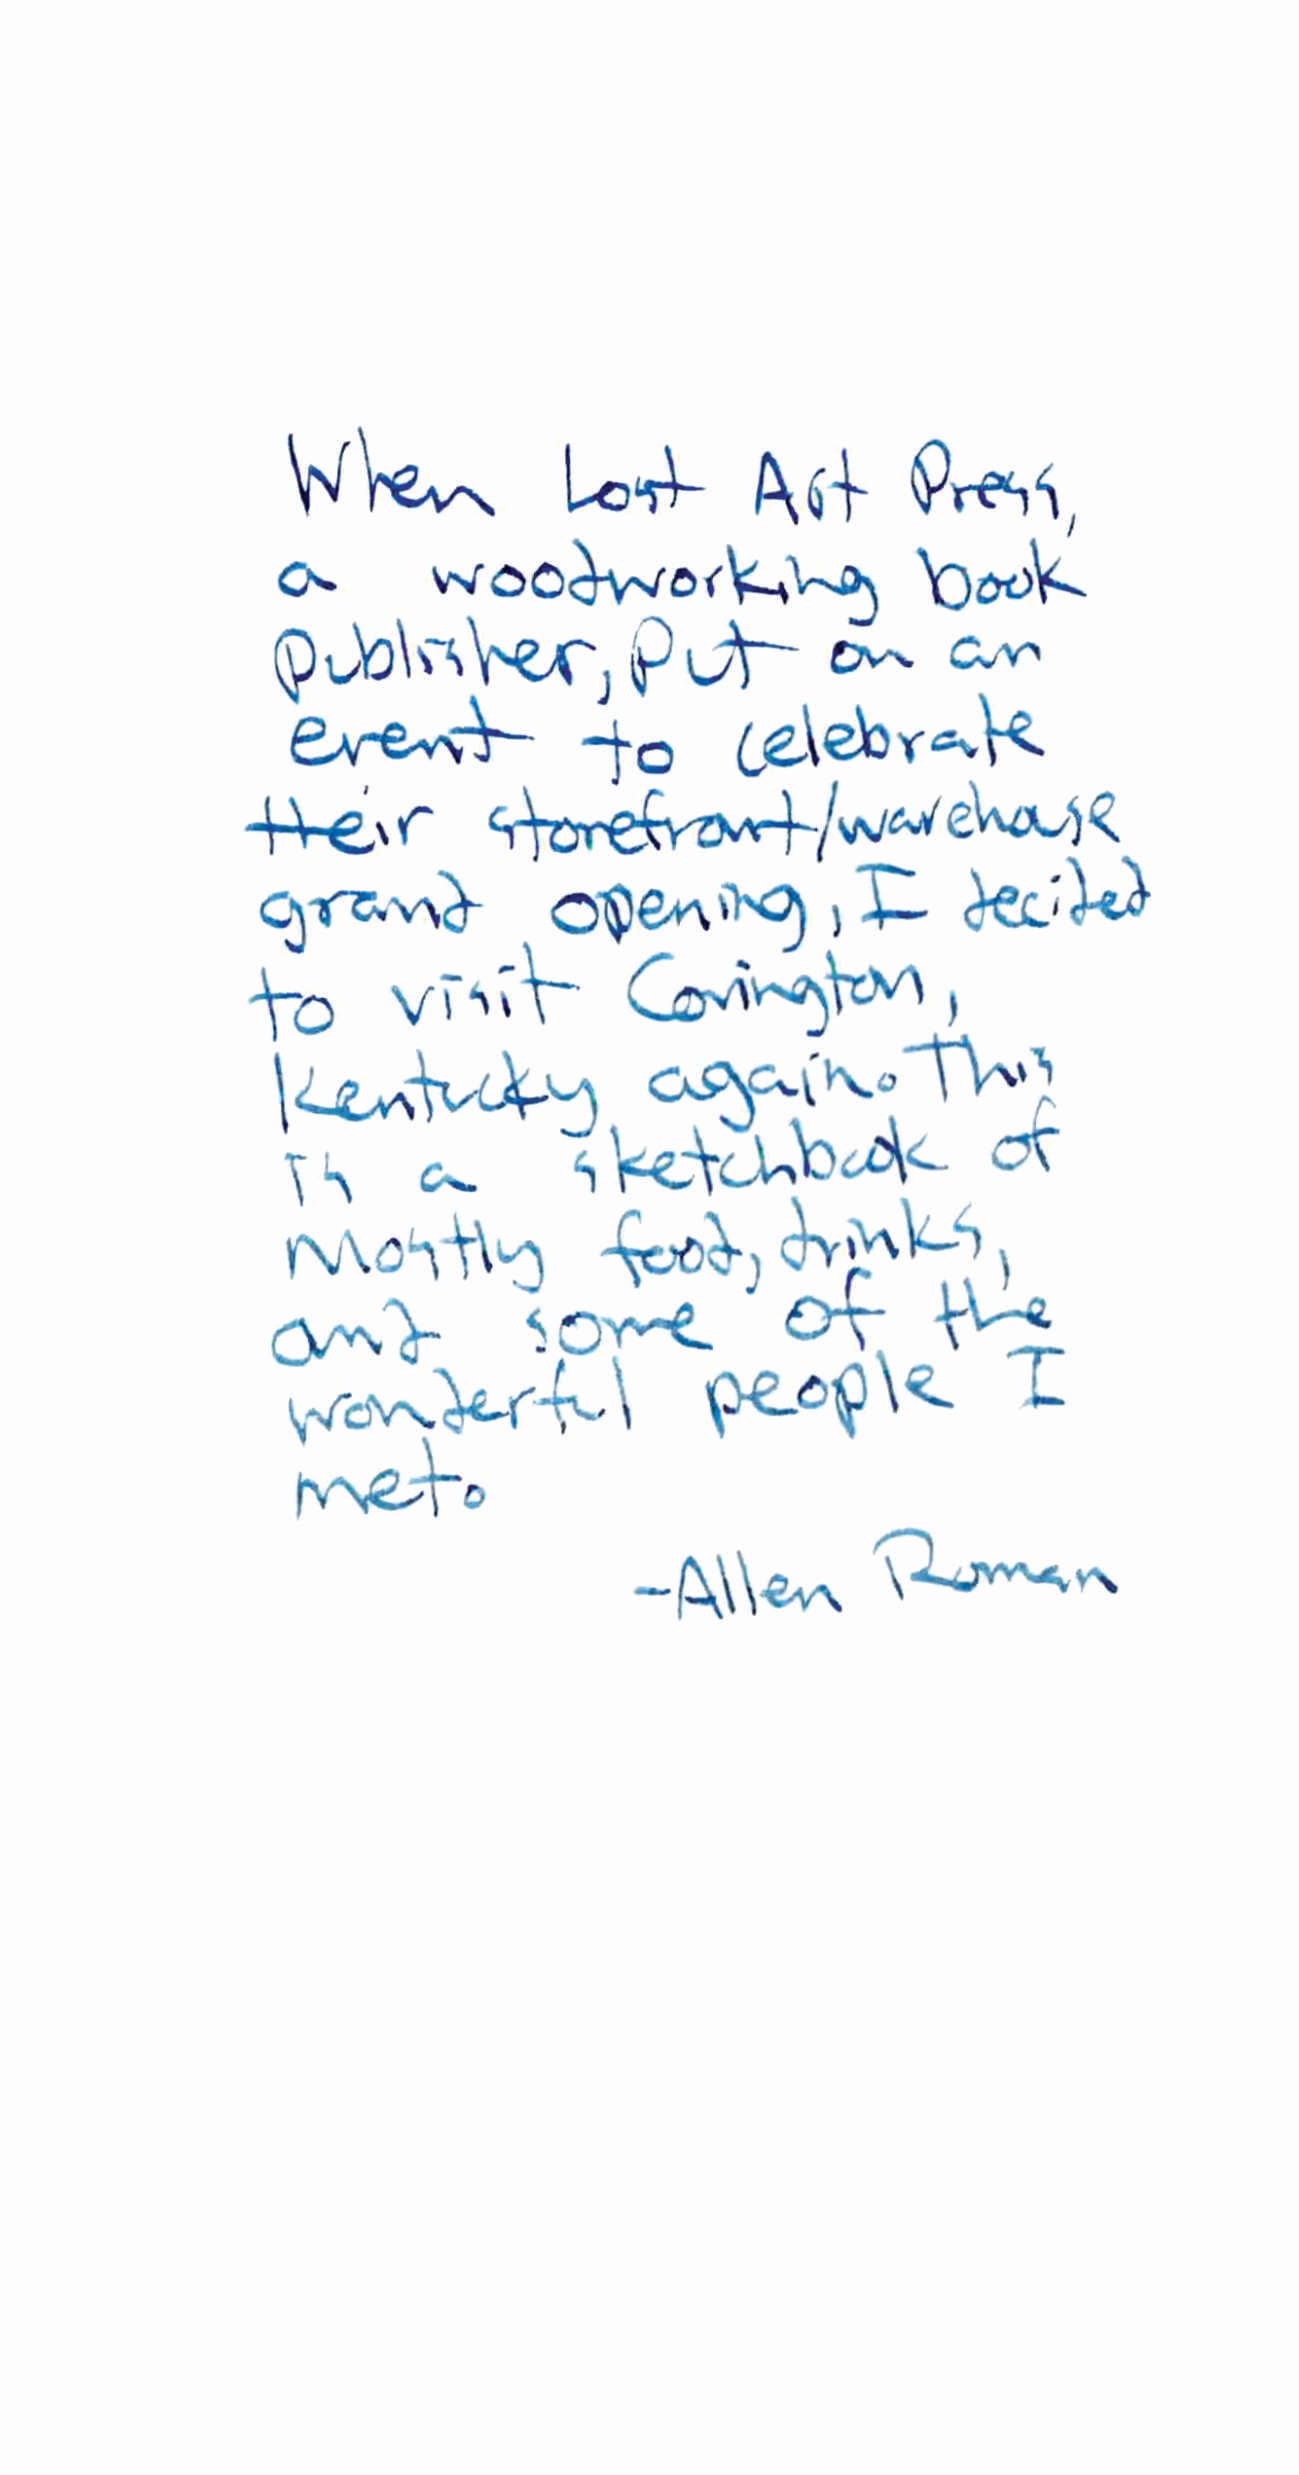 When Lost Art Press,
a woodworking book
publisher, put on an
event to celebrate
their storefront/warehouse
grand opening, I decided
to visit Covington,
Kentucky again. This
is a sketchbook of
mostly food, drinks,
and some of the
wonderful people I
met.
-Allen Roman